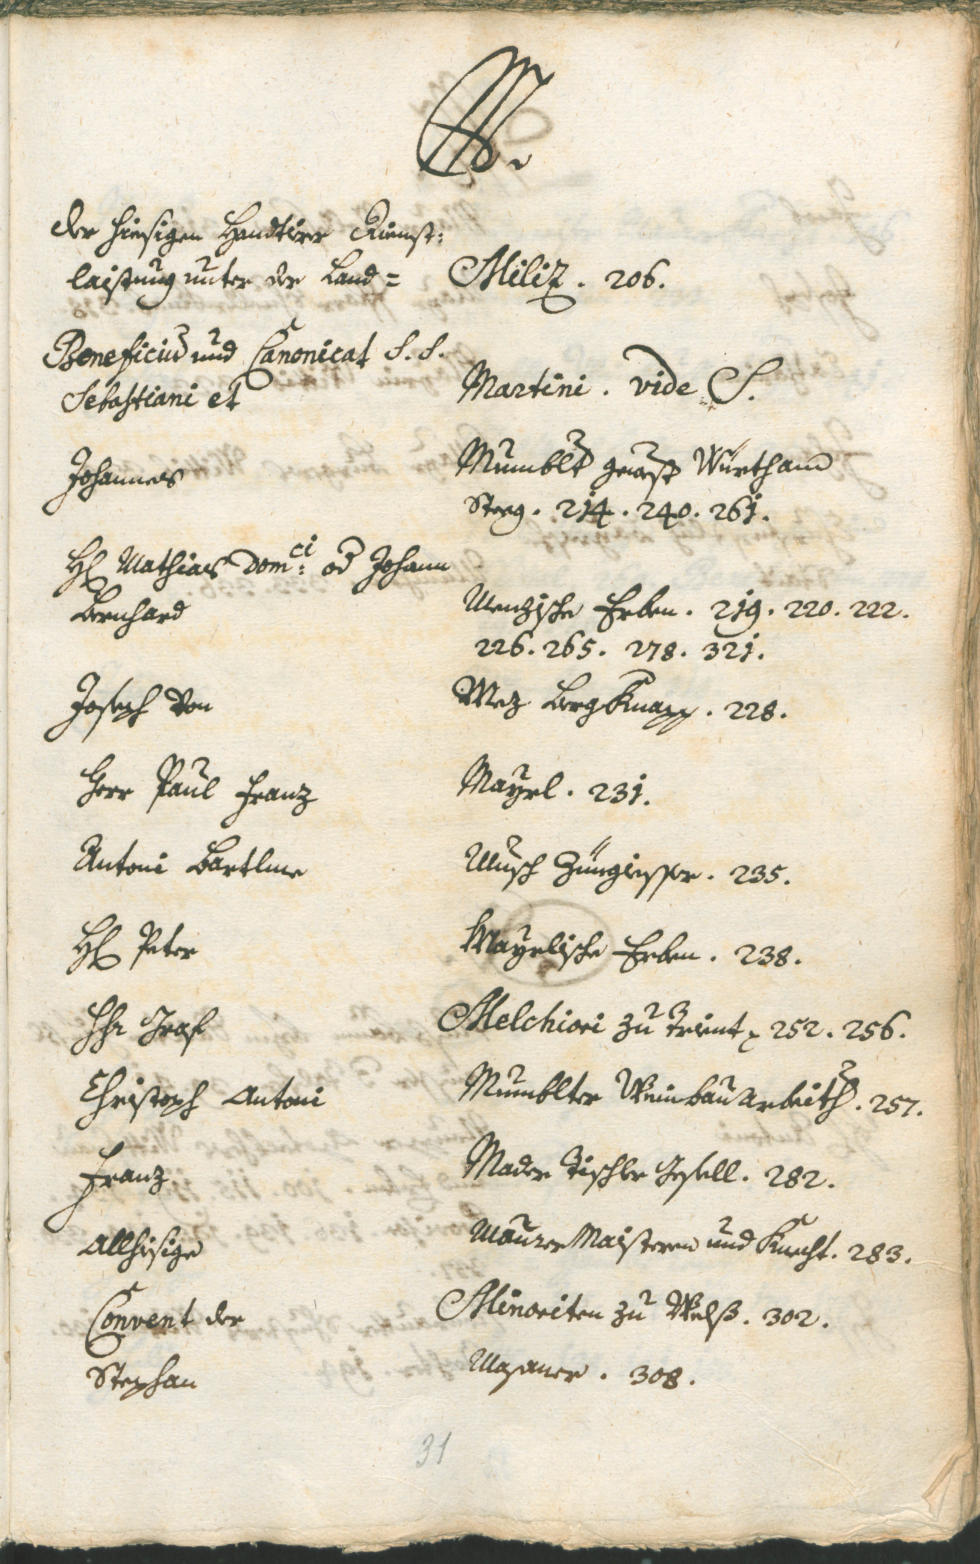 M.
der hiesigen Handtirer Dienst-
laistung unter der Land= Miliz. 206.
Beneficiũ und Canonicat S. S.
Sebastiani et Martini. vide S.
Johannes Mumblt gewest Würth am
Steeg. 214. 240. 261.
H. Mathias Dom:ci od Johann
Bernhard Menzische Erben. 219. 220. 222.
226. 265. 278. 321.
Joseph von Mez BergKnapp. 228.
Herr Paul Franz Mayrl. 231.
Antoni Bartlme Musch Züngiesser. 235.
H. Peter Mayrlische Erben. 238.
Hr Graf Melchiori zu Trient, 252. 256.
Christoph Antoni Mumblter Weinbau Arbeith. 257.
Franz Mader Tischler Gesell. 282.
Allhisige Maurer Maisteren und Knecht. 283.
Convent der Minoriten zu Welß. 302.
Stephan Masaner. 308.
31